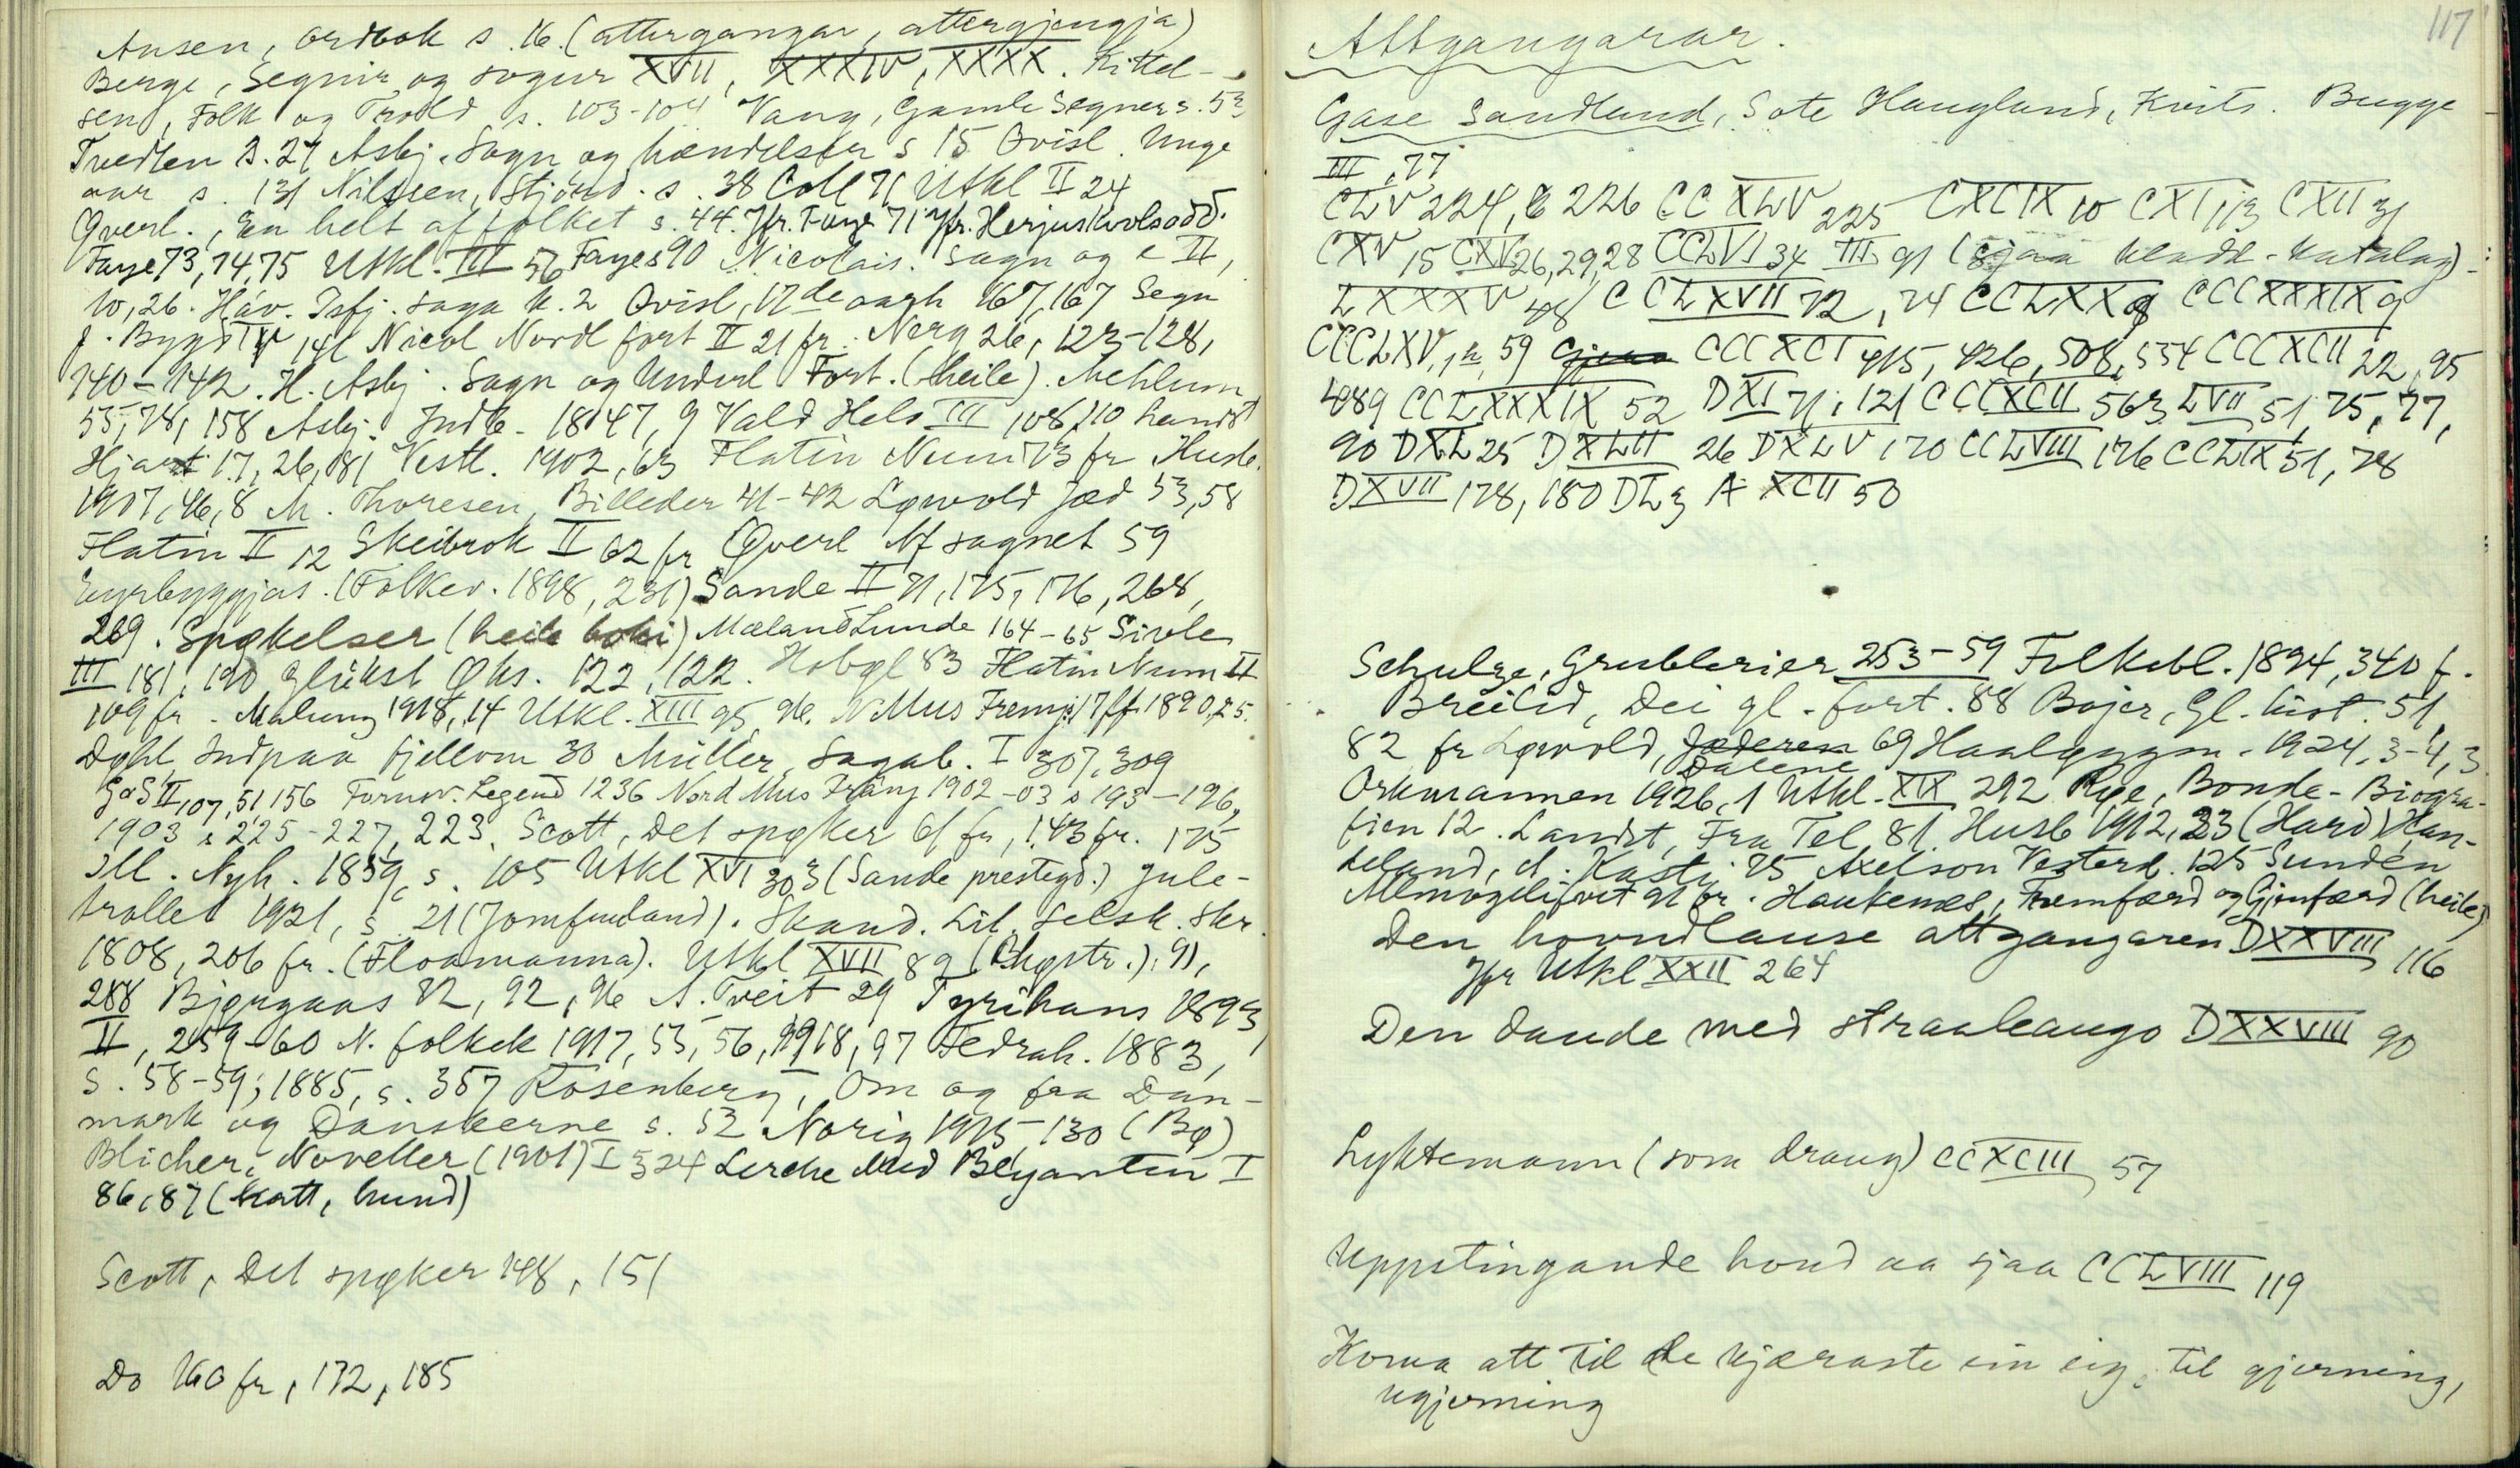 Aasen, ordbok s. 16. (attergangar, attergjengja)
Berge, Segnir og sogur XVII, XXXIV, XXXX. Kittel-
sen, Folk og Trold s. 103-104 Vang, Gamle Segner s. 53
Tvedten s. 27 Asbj. Sagn og hændelser s 15 Qvisl. Unge
aar s. 131 Nilssen, Stjörd. s. 38 Coll 71 Utkl II 24
Qverl., En helt af folket s. 44. Jfr. Faye 71 Jfr. Herjus kvolsodd.
Faye 73, 74, 75 Utkl. III 56 Faye s 90 Nicolais. Sagn og e II,
10, 26. Háv. Isfj. saga k. 2 Qvisl, 17de aarh 167, 167 Segn
f. Bygd IV 141 Nicol Nordl fort II 21 fr. Norg 26, 123-128,
140-142. H. Asbj. Sagn og Underl Fort. (heile). Mehlum
55, 78, 158 Asbj. Indb. 1847, 9 Vald Hels III 108, 110 handst
Hjart 17, 26, 81 Vestl. 1902, 63 Flatin Num 73 fr Husb.
1907, 46, 8 M. Thoresen, Billeder 41-42 Løwold Jæd 53, 58
Flatin II 12 Skeibrok II 62 fr Qverl Af sagnet 59
Eyrbyggjas. (Folkev. 1898, 231) Sande II 71, 175, 176, 268,
269. Spøkelser (heile boki) Mæland Lunde 164-65 Sivle
III 181, 190 Glükst Øks. 122, 122. Hobøl 83 Flatin Num II
109 fr. Malung 1918, 14 Utkl. XIII 95, 96. N Mus Fremj 17 ff 1890, 25.
Dahl Indpaa fjellom 30 Müller, Sagab. I 307, 309
GoS II, 107, 51, 156 Fornsv. Legend 1236 Nord Mus Fräng 1902-03 s 193-196,
1903 s 225-227, 223. Scott, Det spøker 61 fr, 143 fr. 175
Ill. Nyh. 1859, s. 105 Utkl XVI 303 (Sande prestegd.) Jule-
trollet 1921, s. 21 (Jomfruland). Skand. Lit. Selsk. Skr.
1808, 206 fr. (Floamanna). Utkl XVII 89 (Bhgstr.), 91,
288 Bjørgaas 82, 92, 96 A. Tveit 29 Tyrihans 1893,
II, 259-60 N. folkek 1917, 55, 56, 1918, 97 Fedrah. 1883,
s. 58-59; 1885, s. 357 Rosenberg, Om og fra Dan-
mark og Danskerne s. 52 Norig 1915 130 (Bø)
Blicher, Noveller (1901) I 324 Lerche Med Blyanten I
86, 87 (katt, hund)
Scott, Det spøker 148, 151
Do 160 fr, 172, 185
117
Attgangarar.
Gase Sandland, Sote Haugland, Kvits. Bugge
III, 77
CLV 224, 226 CCXLV 225 CXCIX 10 CXI 113 CXII 31
CXV 15 CXV 26, 29, 28 CCLVI 34 III 91 (sjaa handl-katalog)
LXXXV 48 CCLXVII 72, 74 CCLXX 9 CCCXXXIX 9
CCCLXV, 1 h, 59 CCCXCI 415, 426, 508, 534 CCCXCII 22, 95
489 CCLXXXIX 52 DXI 71, 121 CCCXCII 563 LVII 51, 75, 77,
90 DXL 25 DXLII 26 DXLV 170 CCLVIII 176 CCLIX 51, 78
DXVII 178, 180 DL 3 A XCII 50
Schulze, Grublerier 253-59 Folkebl. 1894, 340 f.
Breilid, Dei gl. fort. 88 Bojer, Gl. hist. 51,
82 fr Løwold, Jæderen 69 Haaløygm. 1924, 3-4, 3
Dalene
Orkmannen 1926, 1 Utkl. XIX 292 Rye, Bonde-Biogra-
fien 12. Landst, Fra Tel 81. Husb 1912, 23 (Hard) Han-
deland, d. Kristi 75 Axelson Vesterd. 125 Sundén
Allmogelifvet 91 fr. Haukenæs, Fremfærd og Gjenfærd (heile)
Den hovudlause attgangaren DXXVIII 116
Jfr Utkl XXII 264
Den daude med straaleaugo DXXVIII 90
Lyktemann (som draug) CCXCIII 57
Uppstingande hond aa sjaa CCLVIII 119
Koma att til de kjæraste ein eig, til gjerning,
ugjerning